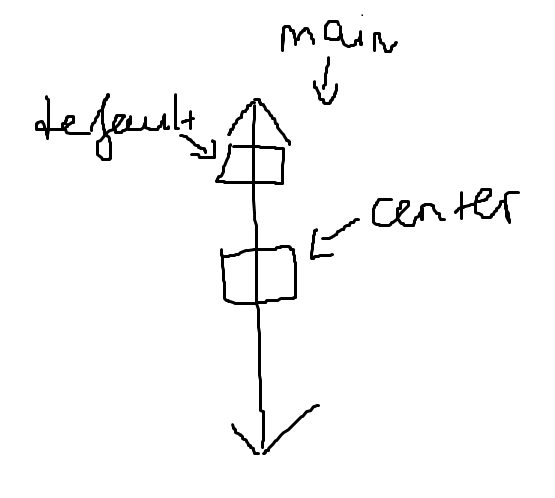 main
default
center